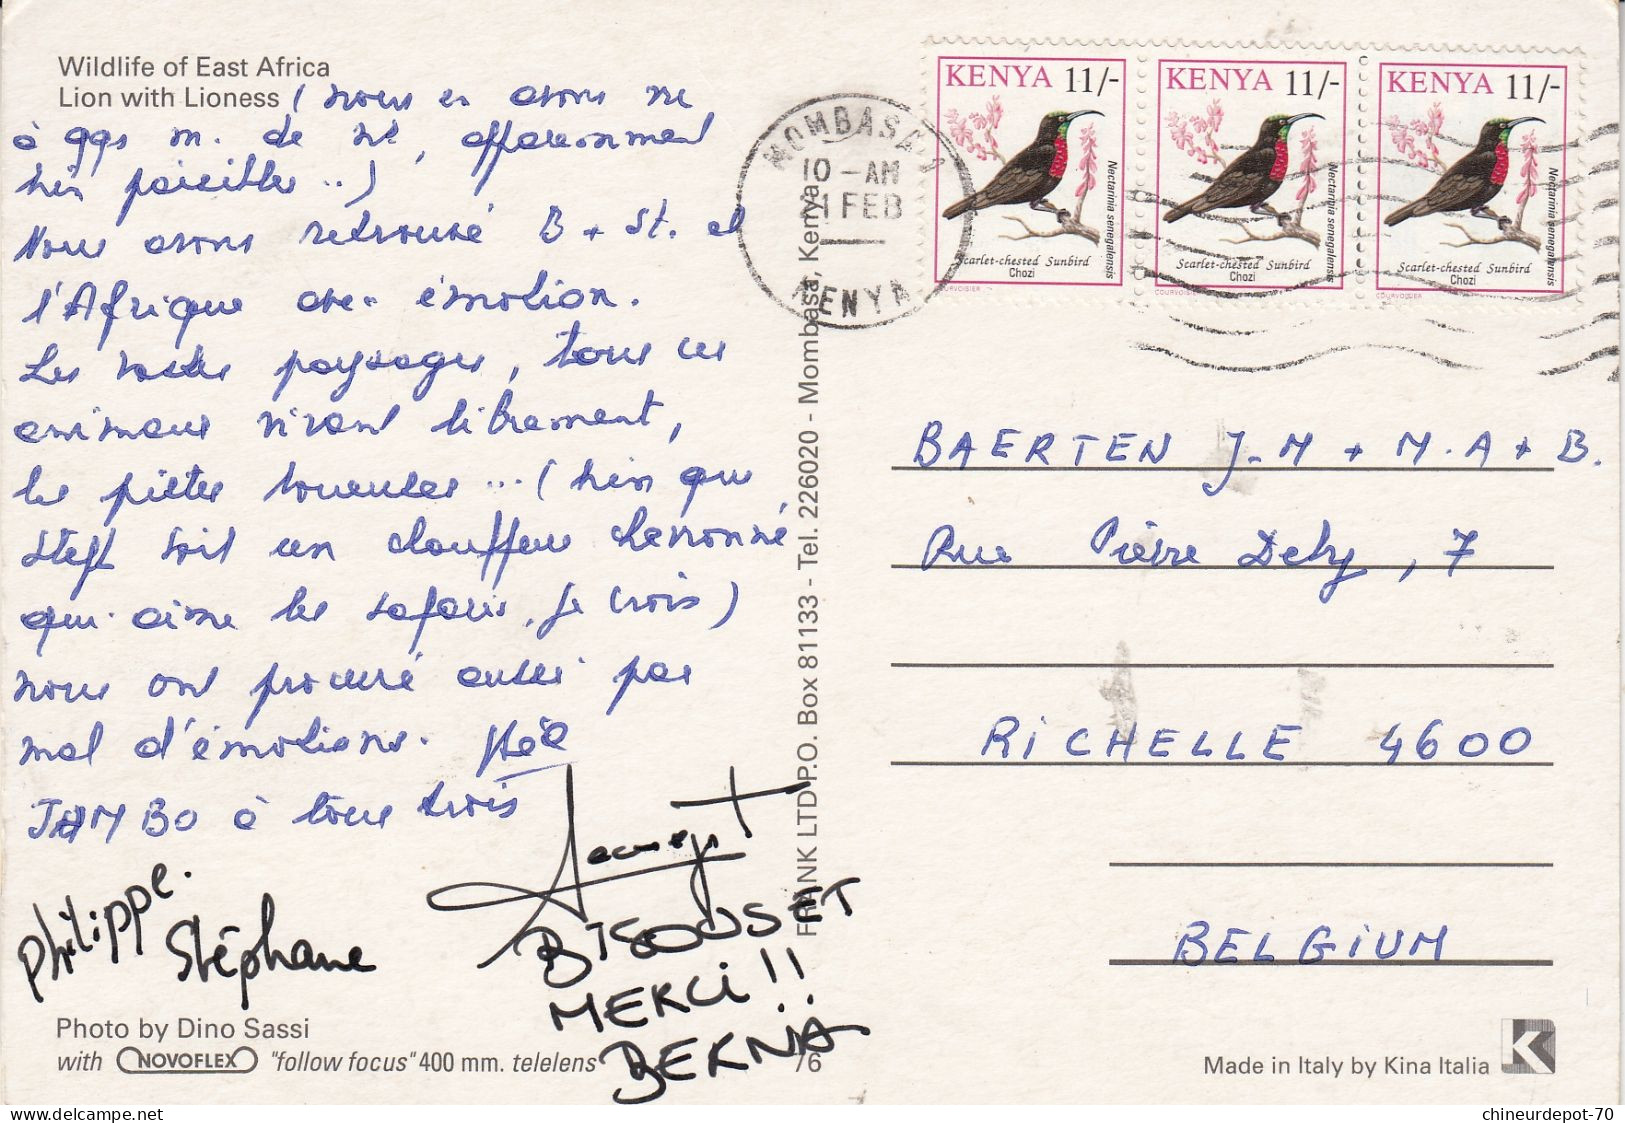 Wildlife of East Africa
Lion with Lioness (nous en avons vu
à qqs m. de nous, apparemment
bien paisibles ..)
Nous avons retrouvé B + St. et
l'Afrique avec émotion.
Les vastes paysages, tous ces
animaux vivant librement,
les pistes boueuses ... (bien que
Steph soit un chauffeur chevronné
qui aime les safaris, je crois)
nous ont procuré aussi pas
mal d'émotions.
JAMBO à tous trois
Philippe.
Stéphane
BISOUS ET
MERCI!!
Photo by Dino Sassi
with NOVOFLEX "follow focus" 400 mm. telelens
76
FRANK LTD P.O. Box 81133 - Tel. 226020 - Mombasa, Kenya
MOMBASA
10 - AM
FEB
KENYA
KENYA 11/-
Nectarinia senegalensis
Scarlet-chested Sunbird
Chozi
COURVOISIER
KENYA 11/-
Nectarinia senegalensis
Scarlet-chested Sunbird
Chozi
COURVOISIER
KENYA 11/-
Nectarinia senegalensis
Scarlet-chested Sunbird
Chozi
COURVOISIER
BAERTEN J-M + M.A + B.
Rue Pierre Dehy, 7
RICHELLE 4600
BELGIUM
Made in Italy by Kina Italia
K
chineurdepot-70